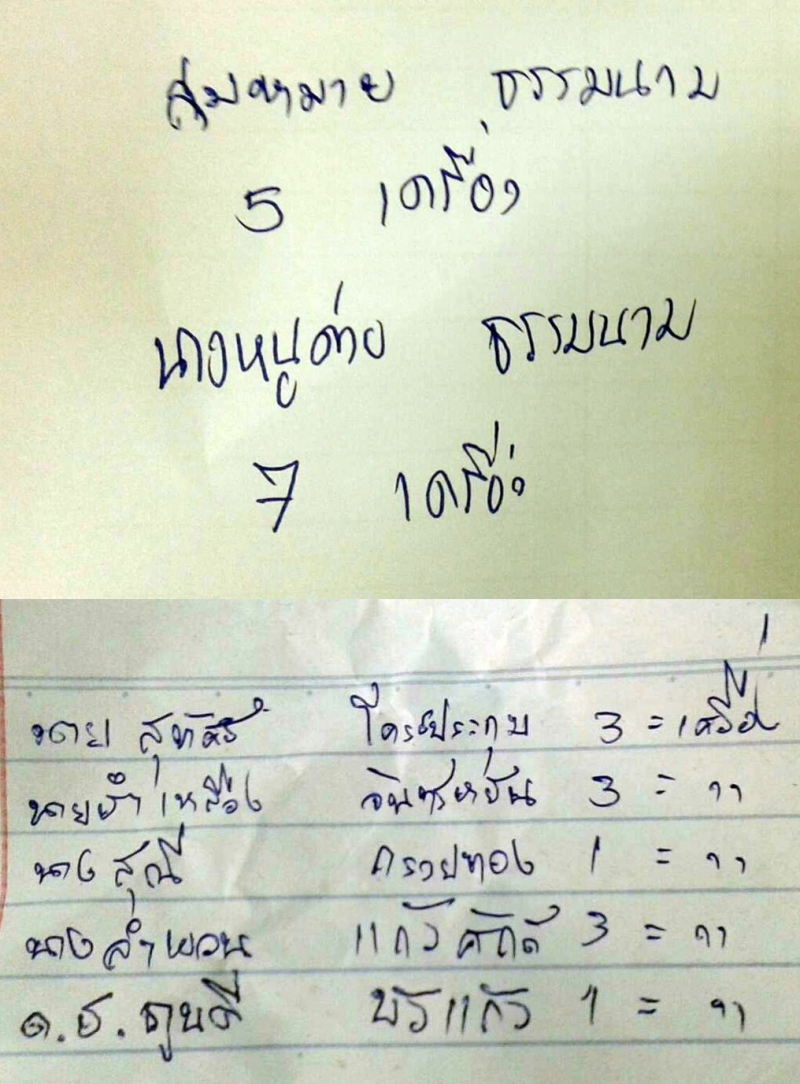 สุมหมาย ธรรมนาม
5 เครื่อง
นางหนูต่าย ธรรมนาม
7 เครื่อง
สุทัศน์ โคตรประทุม 3 = เครื่อง
นาย เหลือง จันทร์หยัน 3 = ''
นาง สุณี กรวยทอง 1 = ''
นาง ลำพวน แก้วศักดิ์ 3 = ''
ด.ช. บัวแก้ว 1 = ''